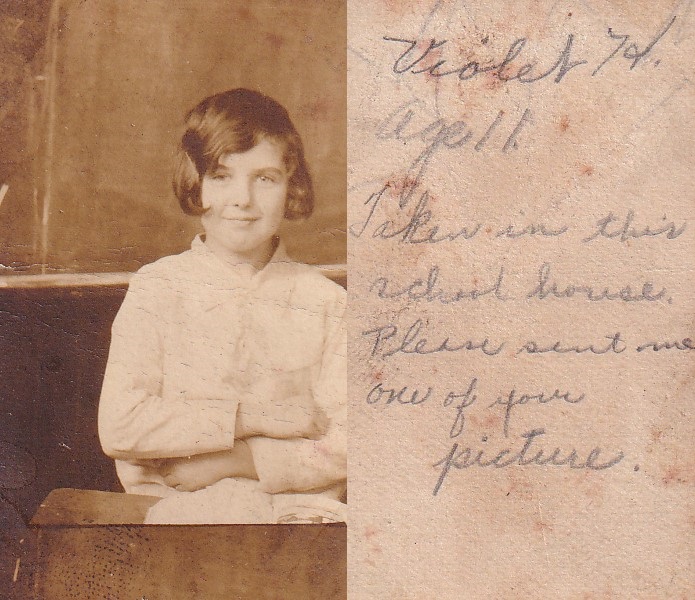 Violet H.
Age 11.
Taken in this
school house.
Please sent me
one of your
picture.